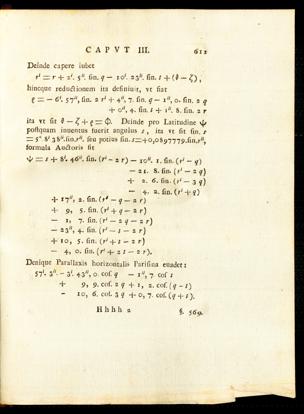 CAPVT III. 611
Deinde capere iubet
r' = r + 2'. 5''. sin. q - 10'. 23''. sin. s + (θ - ζ),
hincque reductionem ita definiuit, vt fiat
ρ = - 6'. 57'', sin. 2 r' + 4'', 7. sin. q - 1'', 0. sin. 2 q
+ 0'', 4. sin. s + 1'', 8. sin. 2 r
ita vt sit θ - ζ + ρ = Φ. Deinde pro Latitudine ψ
postquam inuentus fuerit angulus s, ita vt sit sin. s
= 5° 8' 38''. sin. r'', seu potius sin. s = 40,0897779. sin. r'',
formula Auctoris fit
ψ = s + 8'. 46''. sin. (r' - 2 r) - 10''. 1. sin. (r' - q)
- 21. 8. sin. (r' - 2 q)
+ 2. 6. sin. (r' - 3 q)
- 4. 2. sin. (r' + q)
+ 17'', 2. sin. (r' - q - 2 r)
+ 9, 5. sin. (r' + q - 2 r)
- 1, 7. sin. (r' - 2 q - 2 r)
- 23'', 4. sin. (r' - s - 2 r)
+ 10, 5. sin. (r' + s - 2 r)
- 4, 0. sin. (r' + 2 s - 2 r).
Denique Parallaxis horizontalis Parisina euadet:
57'. 3''. - 3'. 43'', 0. cos. q - 1'', 7 cos s
+ 9, 9. cos. 2 q + 1, 2. cos. (q - s)
- 10, 6. cos. 3 q + 0, 7. cos. (q + s).
Hhhh 2 §. 569.